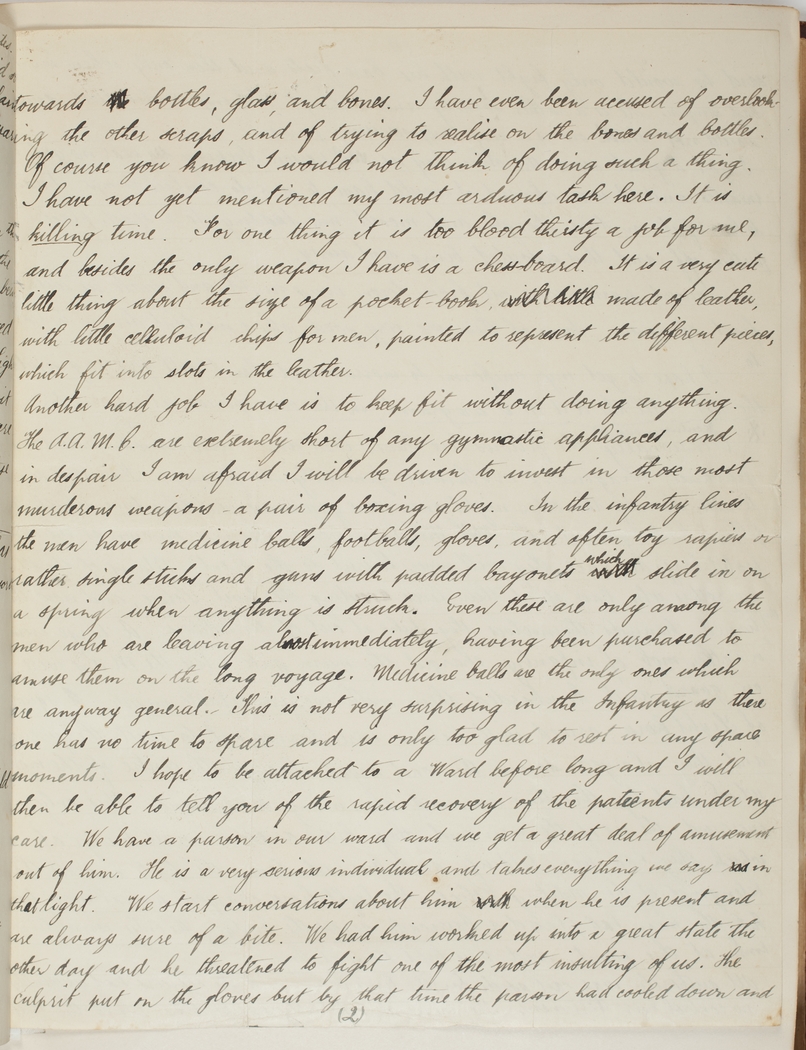 towards bottles, glass, and bones. I have even been accused of overlook-
ing the other scraps, and of trying to realise on the bones and bottles.
Of course you know I would not think of doing such a thing.
I have not yet mentioned my most arduous task here. It is
killing time. For one thing it is too blood thirsty a job for me,
and besides the only weapon I have is a chess-board. It is a very cute
little thing about the size of a pocket-book, made of leather,
with little celluloid chips for men, painted to represent the different pieces,
which fit into slots in the leather.
Another hard job I have is to keep fit without doing anything.
The A.A.M.C. are extremely short of any gymnastic appliances, and
in despair I am afraid I will be driven to invest in those most
murderous weapons - a pair of boxing gloves. In the infantry lines
the men have medicine balls, footballs, gloves, and often toy rapiers or
rather single sticks and guns with padded bayonets which slide in on
a spring when anything is struck. Even these are only among the
men who are leaving almost immediately, having been purchased to
amuse them on the long voyage. Medicine balls are the only ones which
are anyway general. This is not very surprising in the Infantry as there
one has no time to spare and is only too glad to rest in any spare
moments. I hope to be attached to a Ward before long and I will
then be able to tell you of the rapid recovery of the patients under my
care. We have a parson in our ward and we get a great deal of amusement
out of him. He is a very serious individual and takes everything we say in
that light. We start conversations about him when he is present and
are always sure of a bite. We had him worked up into a great state the
other day and he threatened to fight one of the most insulting of us. The
culprit put on the gloves but by that time the parson had cooled down and
(2)